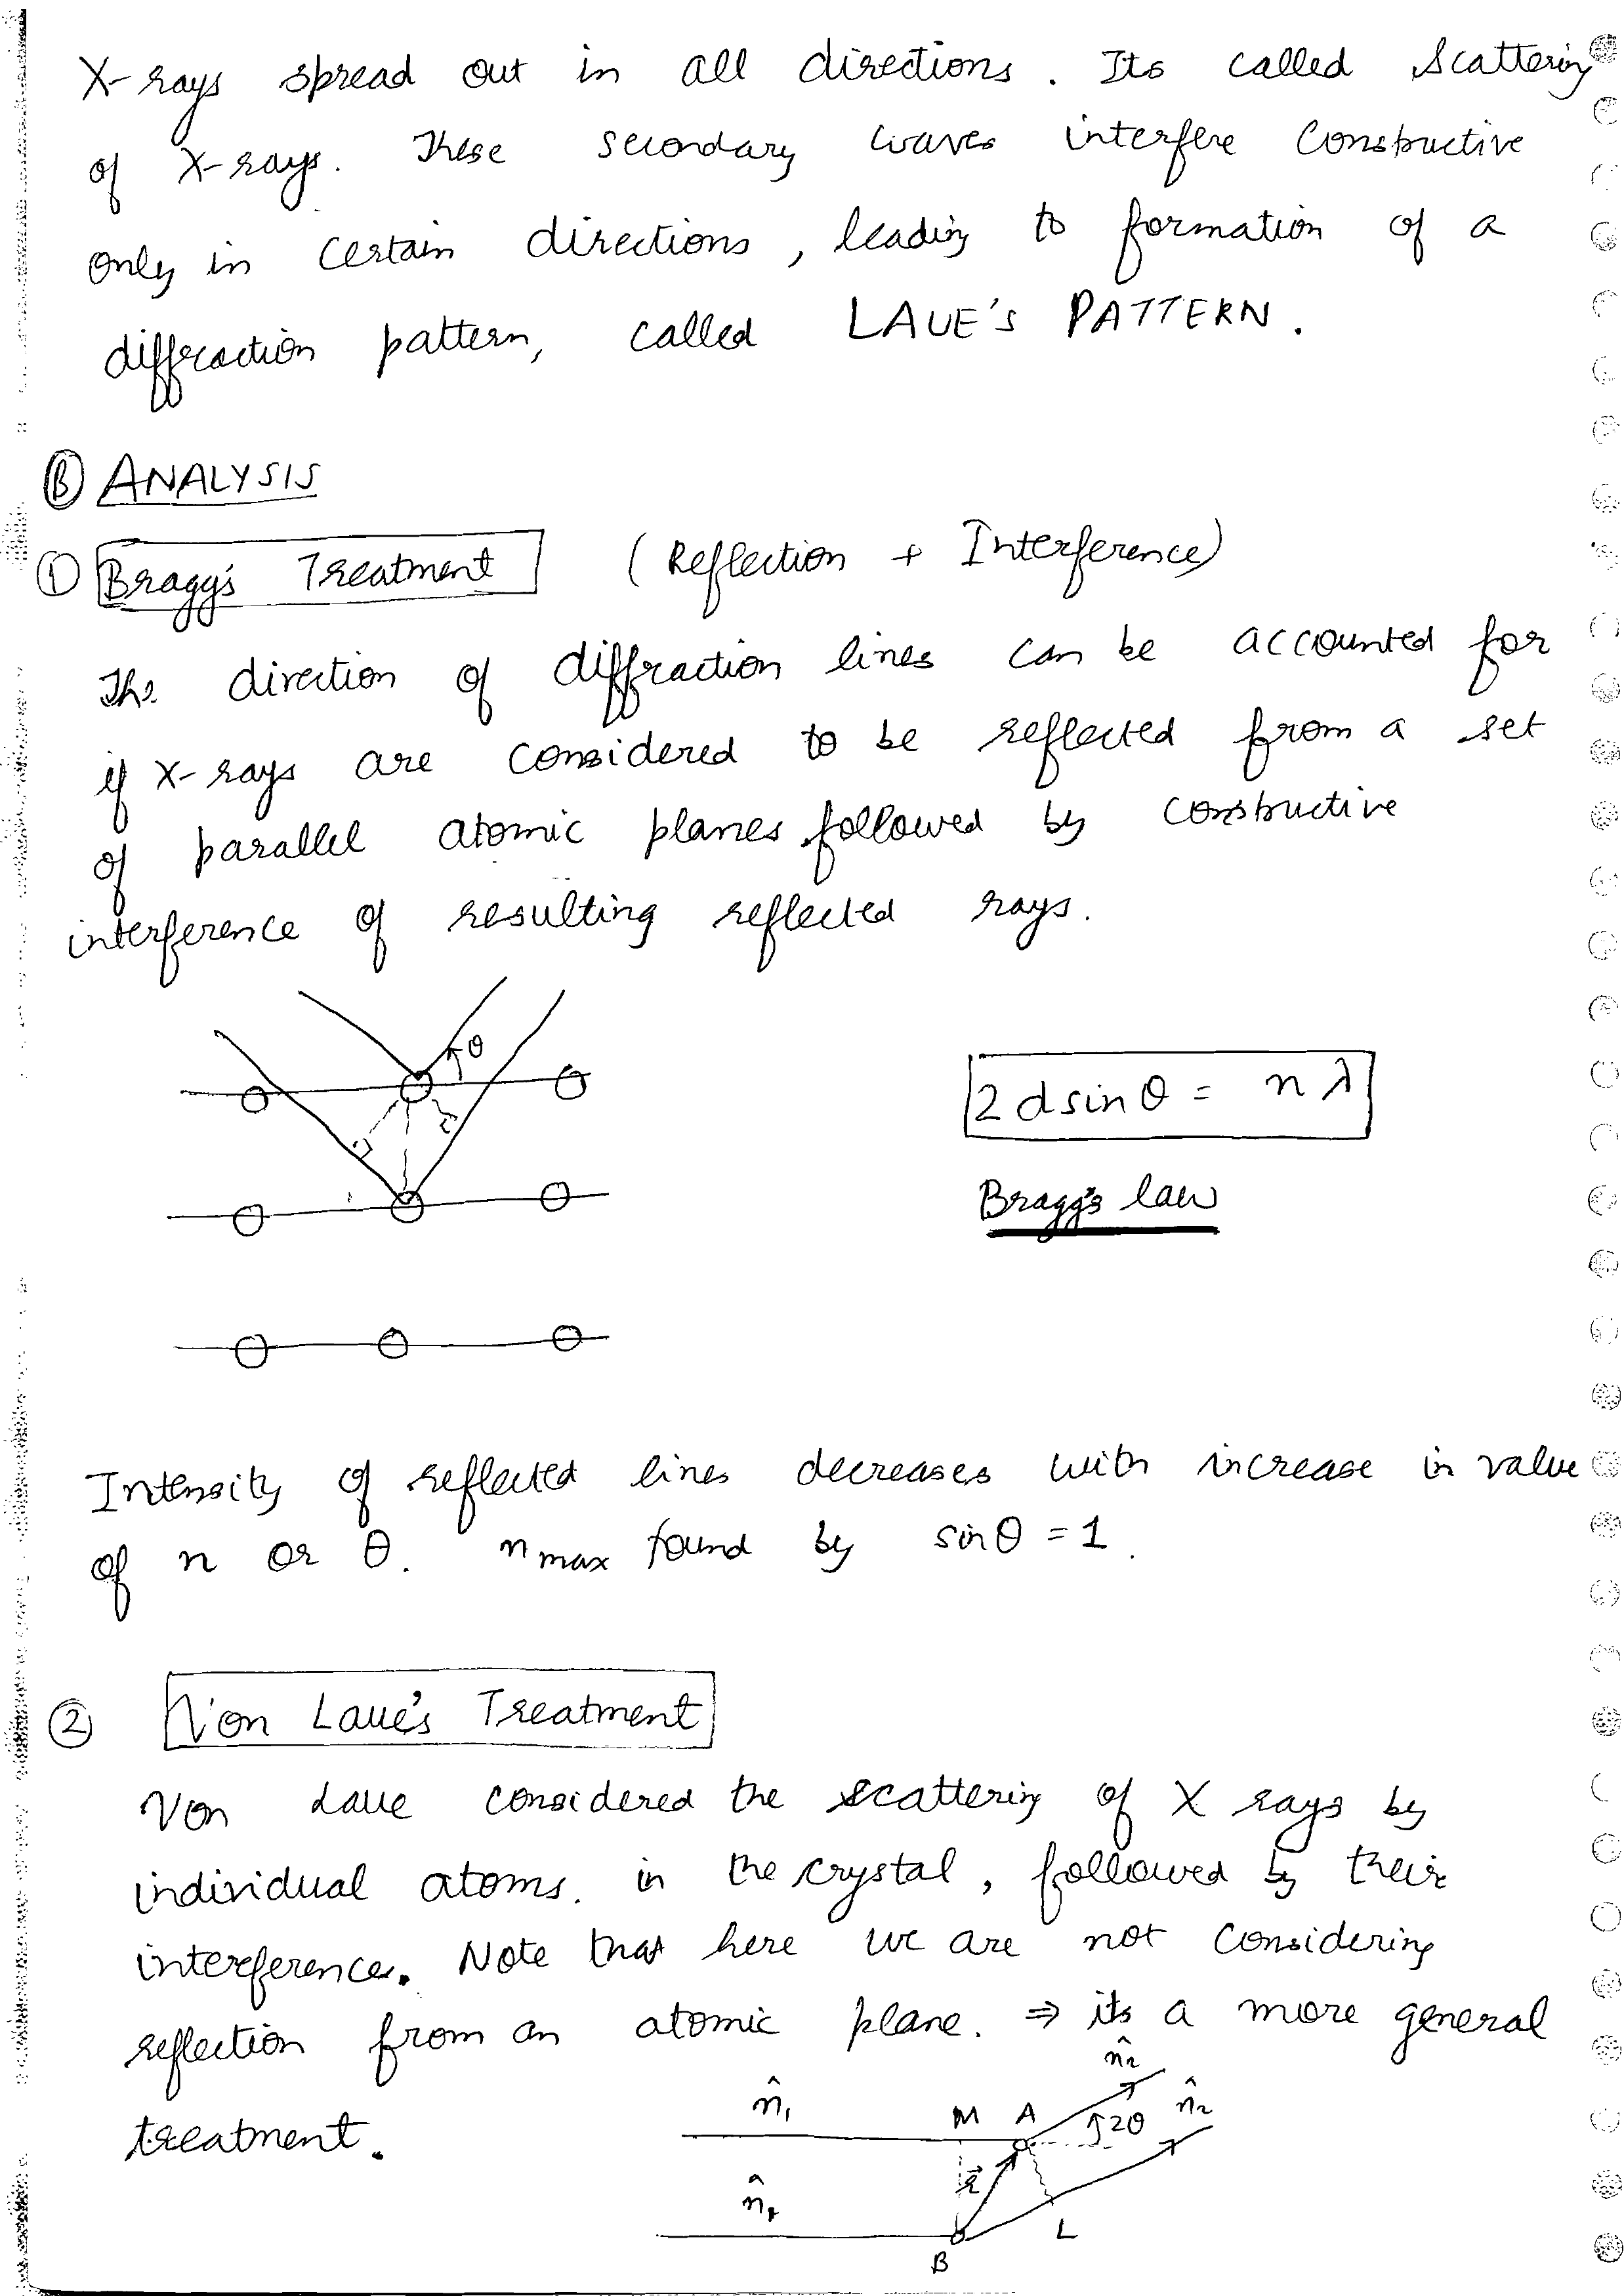 X-rays spread out in all directions. Its called Scattering
of X-rays. These secondary waves interfere Constructive
only in certain directions, leading to formation of a
diffraction pattern, called LAUE'S PATTERN.
Ⓑ ANALYSIS
① Bragg's Treatment (Reflection + Interference)
The direction of diffraction lines can be accounted for
if X-rays are considered to be reflected from a set
of parallel atomic planes followed by constructive
interference of resulting reflected rays.
θ
2 d sin θ = n λ
Bragg's law
Intensity of reflected lines decreases with increase in value
of n or θ. n max found by sin θ = 1.
② Von Laue's Treatment
Von Laue considered the scattering of X rays by
individual atoms. in the crystal, followed by their
interference. Note that here we are not considering
reflection from an atomic plane. ⇒ its a more general
treatment.
n̂₂
n̂₁ M A 2θ n̂₂
n̂₁
B L